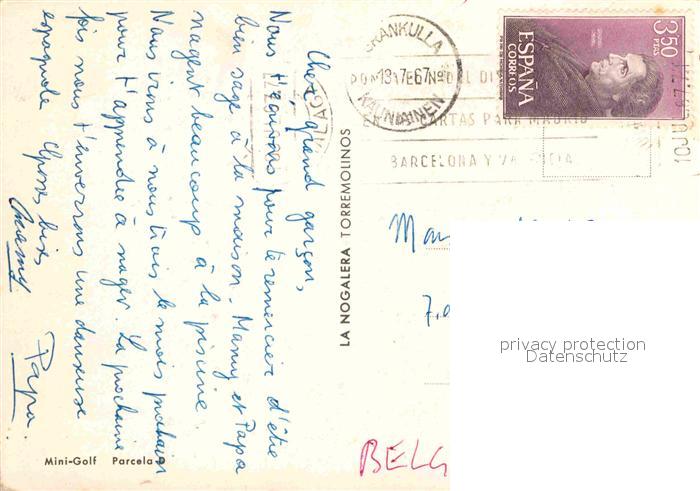 Cher grand garçon,
Nous t'écrivons pour te remercier d'être
bien sage à la maison. Mamy et Papa
nagent beaucoup à la piscine
Nous irons à nous trois le mois prochain
pour t'apprendre à nager. La prochaine
fois nous t'enverrons une danseuse
espagnole Grosses bises
Papa.
LA NOGALERA TORREMOLINOS
Mini-Golf Parcela
GRANKULLA
KAUNIAINEN
CARTAS PARA MADRID
BARCELONA Y VALENCIA
3,50
PTAS
ESPAÑA
CORREOS
BELG
privacy protection
Datenschutz